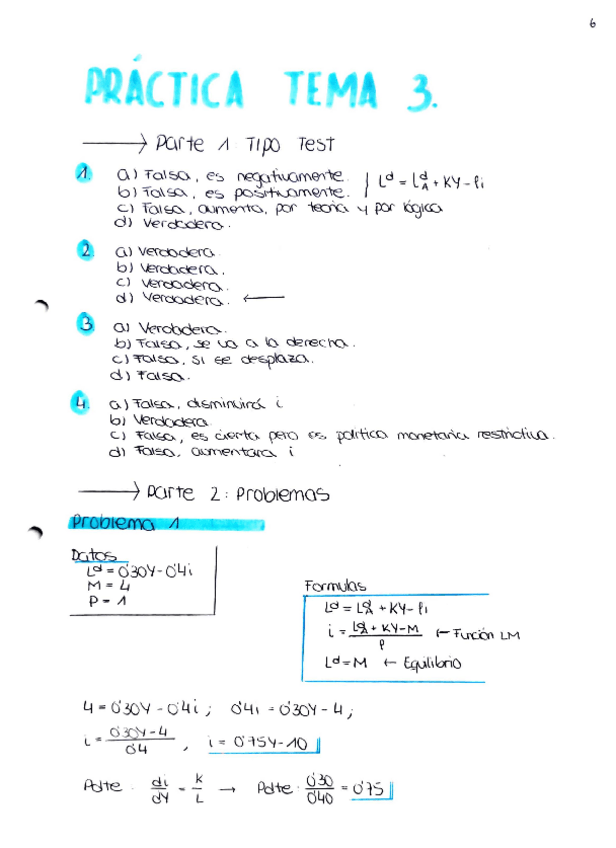 6
PRÁCTICA TEMA 3.
→ Parte 1 TIPO Test
1. a) Falsa, es negativamente.
b) Falsa, es positivamente. } Lᵈ = Lᵈ_A + KY - Pi
c) Falsa, aumenta, por teoria y por lógica
d) Verdadera.
2. a) Verdadera
b) Verdadera.
c) Verdadera.
d) Verdadera. ←
3 a) Verdadera.
b) Falsa, se va a la derecha.
c) Falsa, si se desplaza.
d) Falsa.
4. a) Falsa, disminuirá i
b) Verdadera
c) Falsa, es cierta pero es politica monetaria restrictiva.
d) Falsa, aumentara i
→ Parte 2: Problemas
Problema 1
Datos
Lᵈ = 0'30Y - 0'4i
M = 4
P = 1
Formulas
Lᵈ = Lᵈ_A + KY - Pi
i = (Lᵈ_A + KY - M) / P ← Función LM
Lᵈ = M ← Equilibrio
4 = 0'30Y - 0'4i ; 0'4i = 0'30Y - 4 ;
i = (0'30Y - 4) / 0'4 , i = 0'75Y - 10
Pdte. di/dY = K/L → Pdte: 0'30/0'40 = 0'75